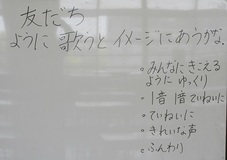 友だち
ように 歌うと イメージにあうかな
・みんなにきこえる
ように ゆっくり
・1音1音ていねいに
・ていねいに
・きれいな声
・ふんわり